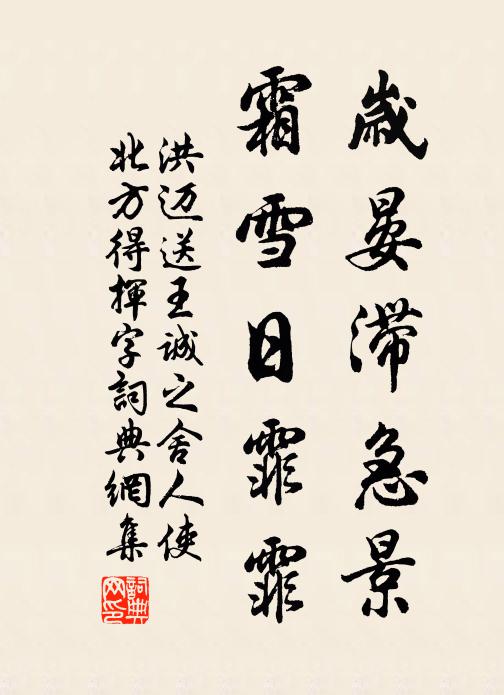 歲晏滯急景
霜雪日霏霏
洪迈送王诚之舍人使
北方得揮字詞典網集
詞典网印